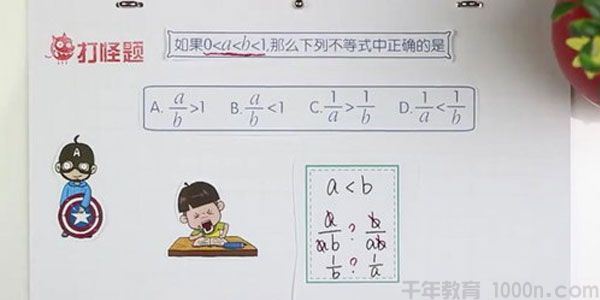 打怪题
如果0<a<b<1,那么下列不等式中正确的是
A. a/b>1 B. a/b<1 C. 1/a>1/b D. 1/a<1/b
A
a<b
a/ab ? b/ab
1/b ? 1/a
千年教育 1000n.com